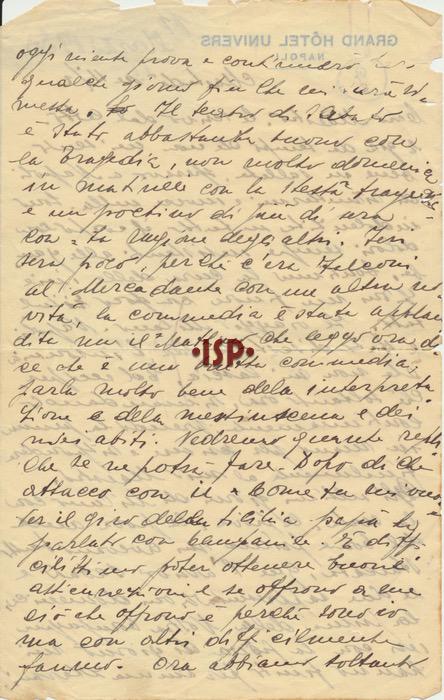 GRAND HÔTEL UNIVERS
NAPOLI
oggi niente prova e continuerò
qualche giorno finchè mi sarò ri
messa. Il teatro di sabato
è stato abbastanza buono con
la tragedia, non molto domenica
in matinée con la stessa tragedia
e un pochino di più di sera
con "La ragione degli altri". Ieri
sera poco, perchè c'era Falconi
al Mercadante con un altra no
vità, la commedia è stata applau
dita ma il che leggo ora di
ce che è una commedia,
parla molto bene della interpreta
zione e della messinscena e dei
miei abiti. Vedremo quante
che se ne potrà fare. Dopo di che
attacco con il "Come tu mi vuoi"
Per il giro della Sicilia papà ha
parlato con Campanile. È diffi
cilissimo poter ottenere buone
assicurazioni e se offrono a me
ciò che offrono è perchè sono io
ma con altri difficilmente
fanno. Ora abbiamo soltanto
·ISP·